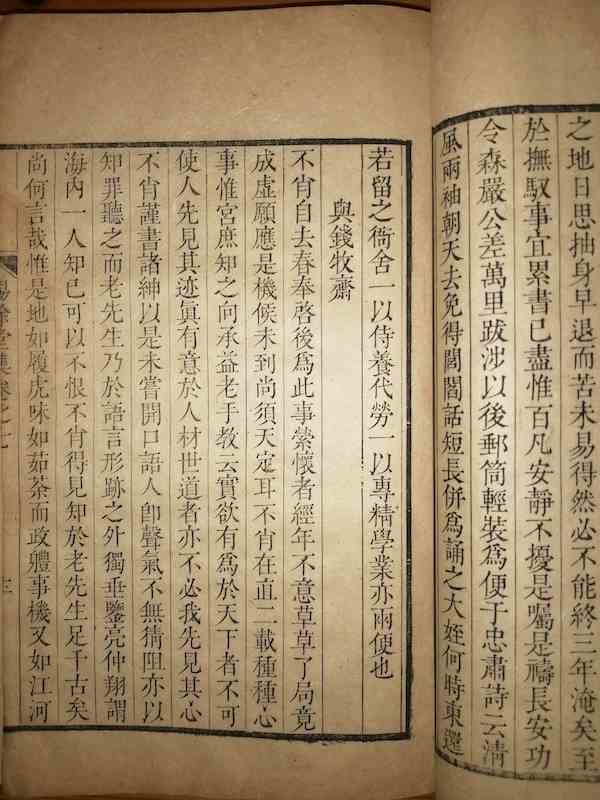 之地日思抽身早退而苦未易得然必不能終三年淹矣至
於撫馭事宜累書已盡惟百凡安靜不擾是囑是禱長安功
令森嚴公差萬里跋涉以後郵筒輕裝爲便于忠肅詩云清
風兩袖朝天去免得閭閻話短長併爲誦之大姪何時東還
若留之衙舍一以侍養代勞一以專精學業亦兩便也
與錢牧齋
不肖自去春奉啓後爲此事縈懷者經年不意草草了局竟
成虛願應是機候未到尚須天定耳不肖在直二載種種心
事惟宮庶知之向承益老手教云實欲有爲於天下者不可
使人先見其迹眞有意於人材世道者亦不必我先見其心
不肖謹書諸紳以是未嘗開口語人卽聲氣不無猜阻亦以
知罪聽之而老先生乃於語言形跡之外獨垂鑒亮仲翔謂
海內一人知已可以不恨不肖得見知於老先生足千古矣
尚何言哉惟是地如履虎味如茹荼而政體事機又如江河
餘堂集卷之七